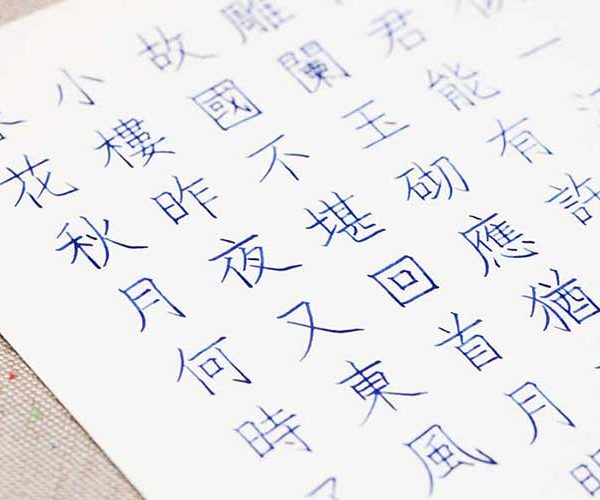 花秋月何時
小樓昨夜又東風
故國不堪回首月明
雕闌玉砌應猶
君能有許
一